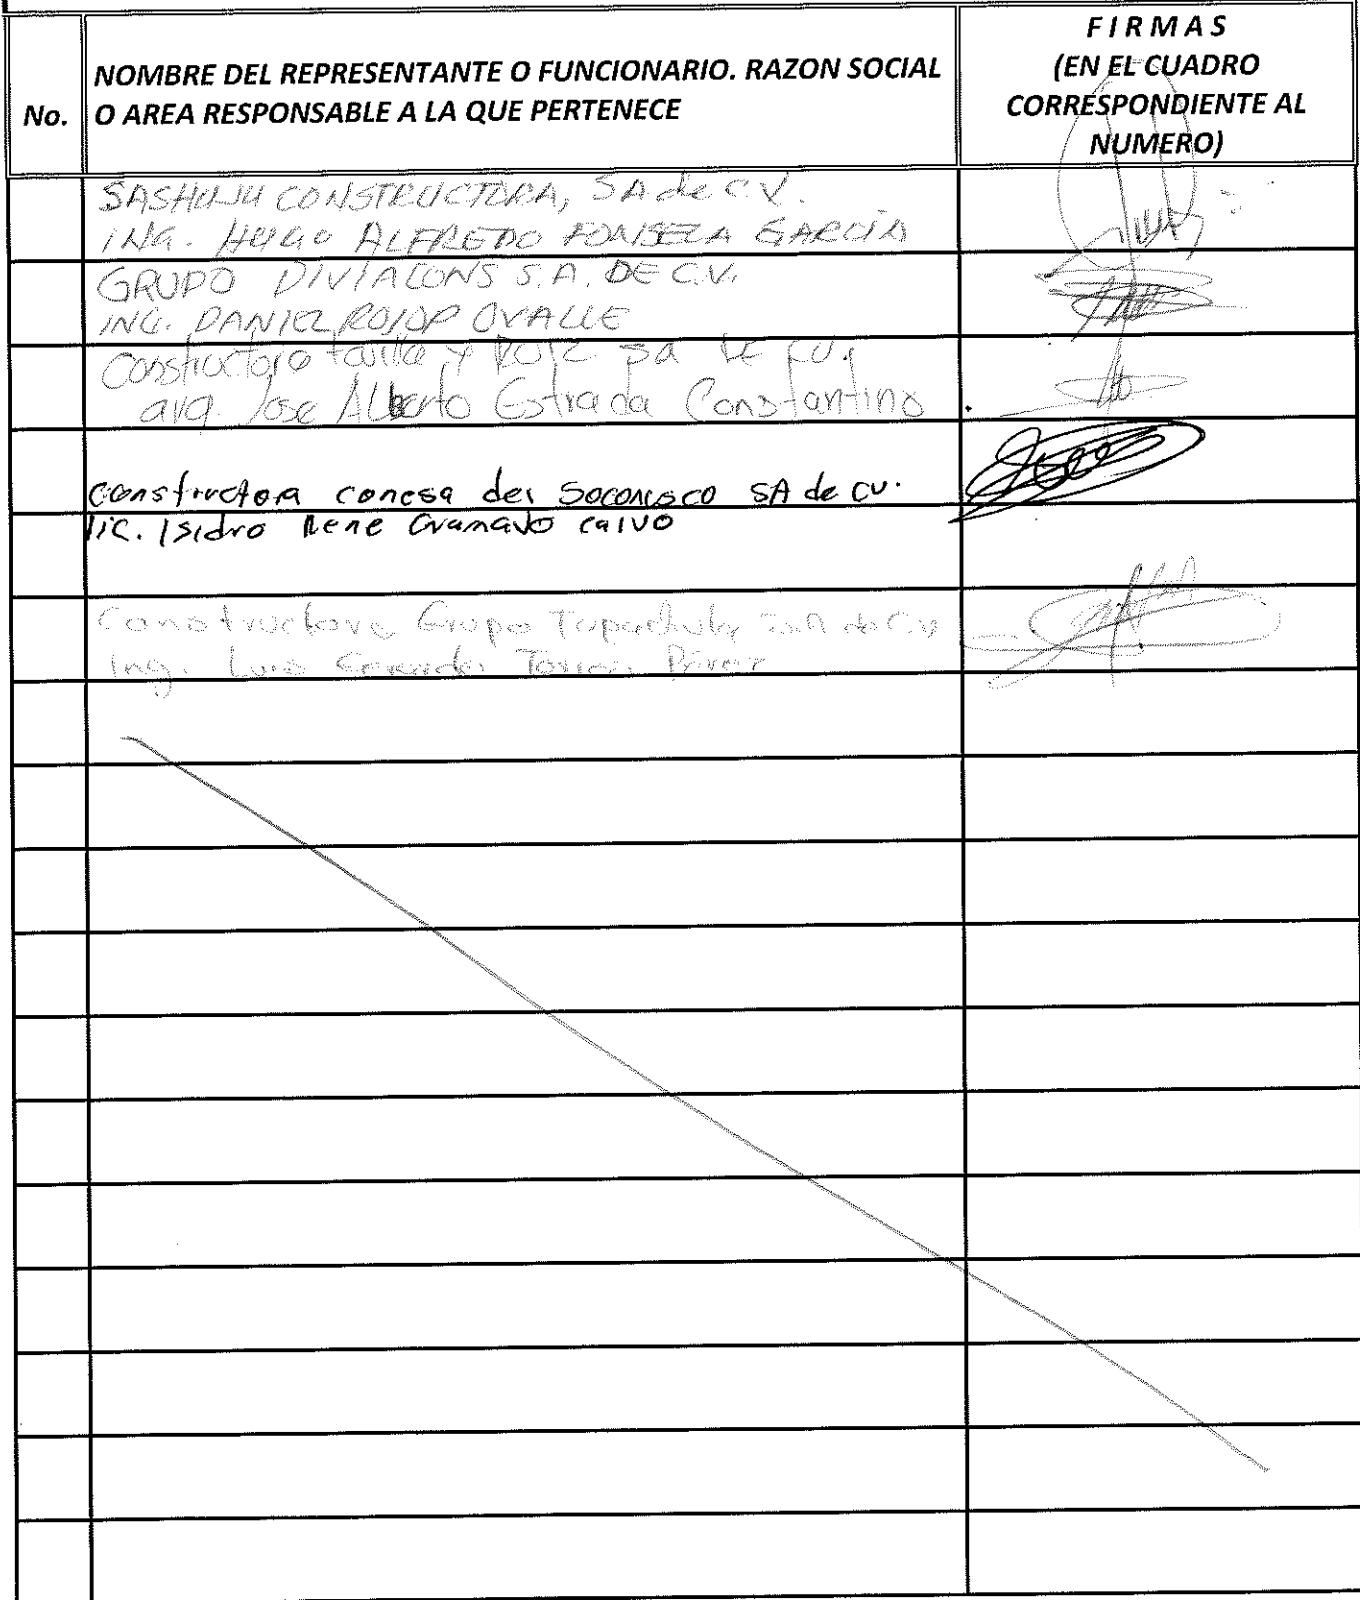 No.
NOMBRE DEL REPRESENTANTE O FUNCIONARIO. RAZON SOCIAL
O AREA RESPONSABLE A LA QUE PERTENECE
FIRMAS
(EN EL CUADRO
CORRESPONDIENTE AL
NUMERO)
SASHUJU CONSTRUCTORA, SA de C.V.
ING. HUGO ALFREDO FONSECA GARCÍA
GRUPO DIVIACONS S.A. DE C.V.
ING. DANIEL ROJOP OVALLE
Constructora y Ruiz sa de cv.
arq. Jose Alberto Estrada Constantino
Constructora conesa del Soconusco SA de cv.
lic. Isidro Rene calvo
Constructora Grupo Tapachula S.A de C.V
Ing. Luis